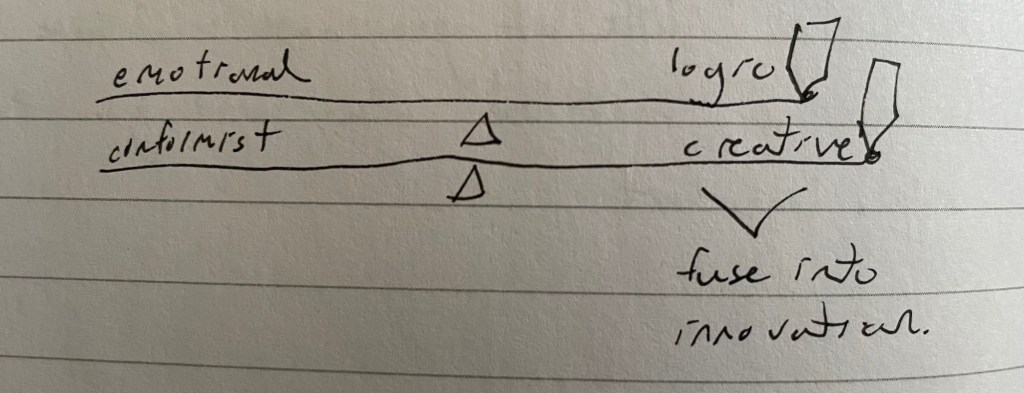 emotional logic
conformist creative
fuse into
innovation.